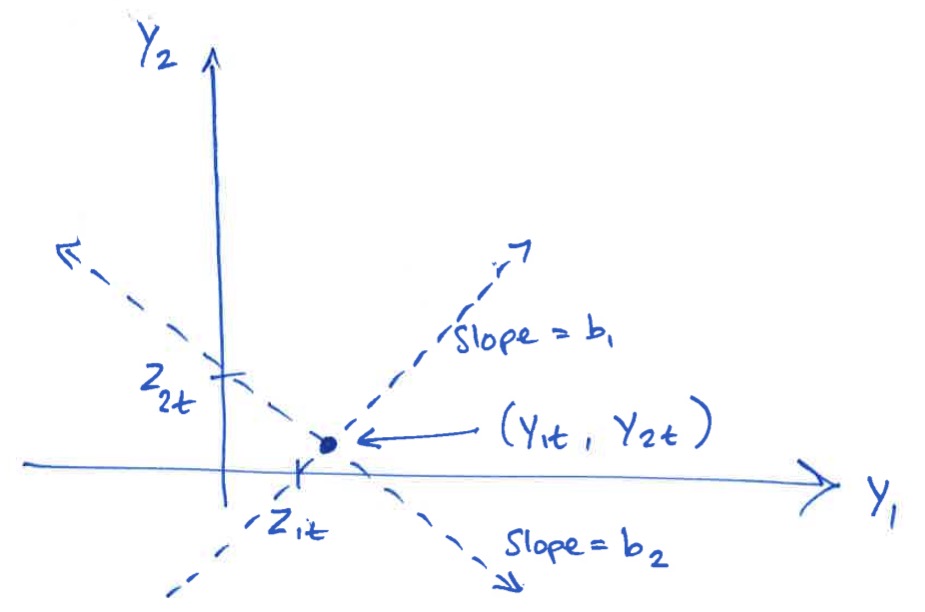 Y₂
Slope = b₁
Z₂t
(Y₁t, Y₂t)
Y₁
Z₁t
Slope = b₂